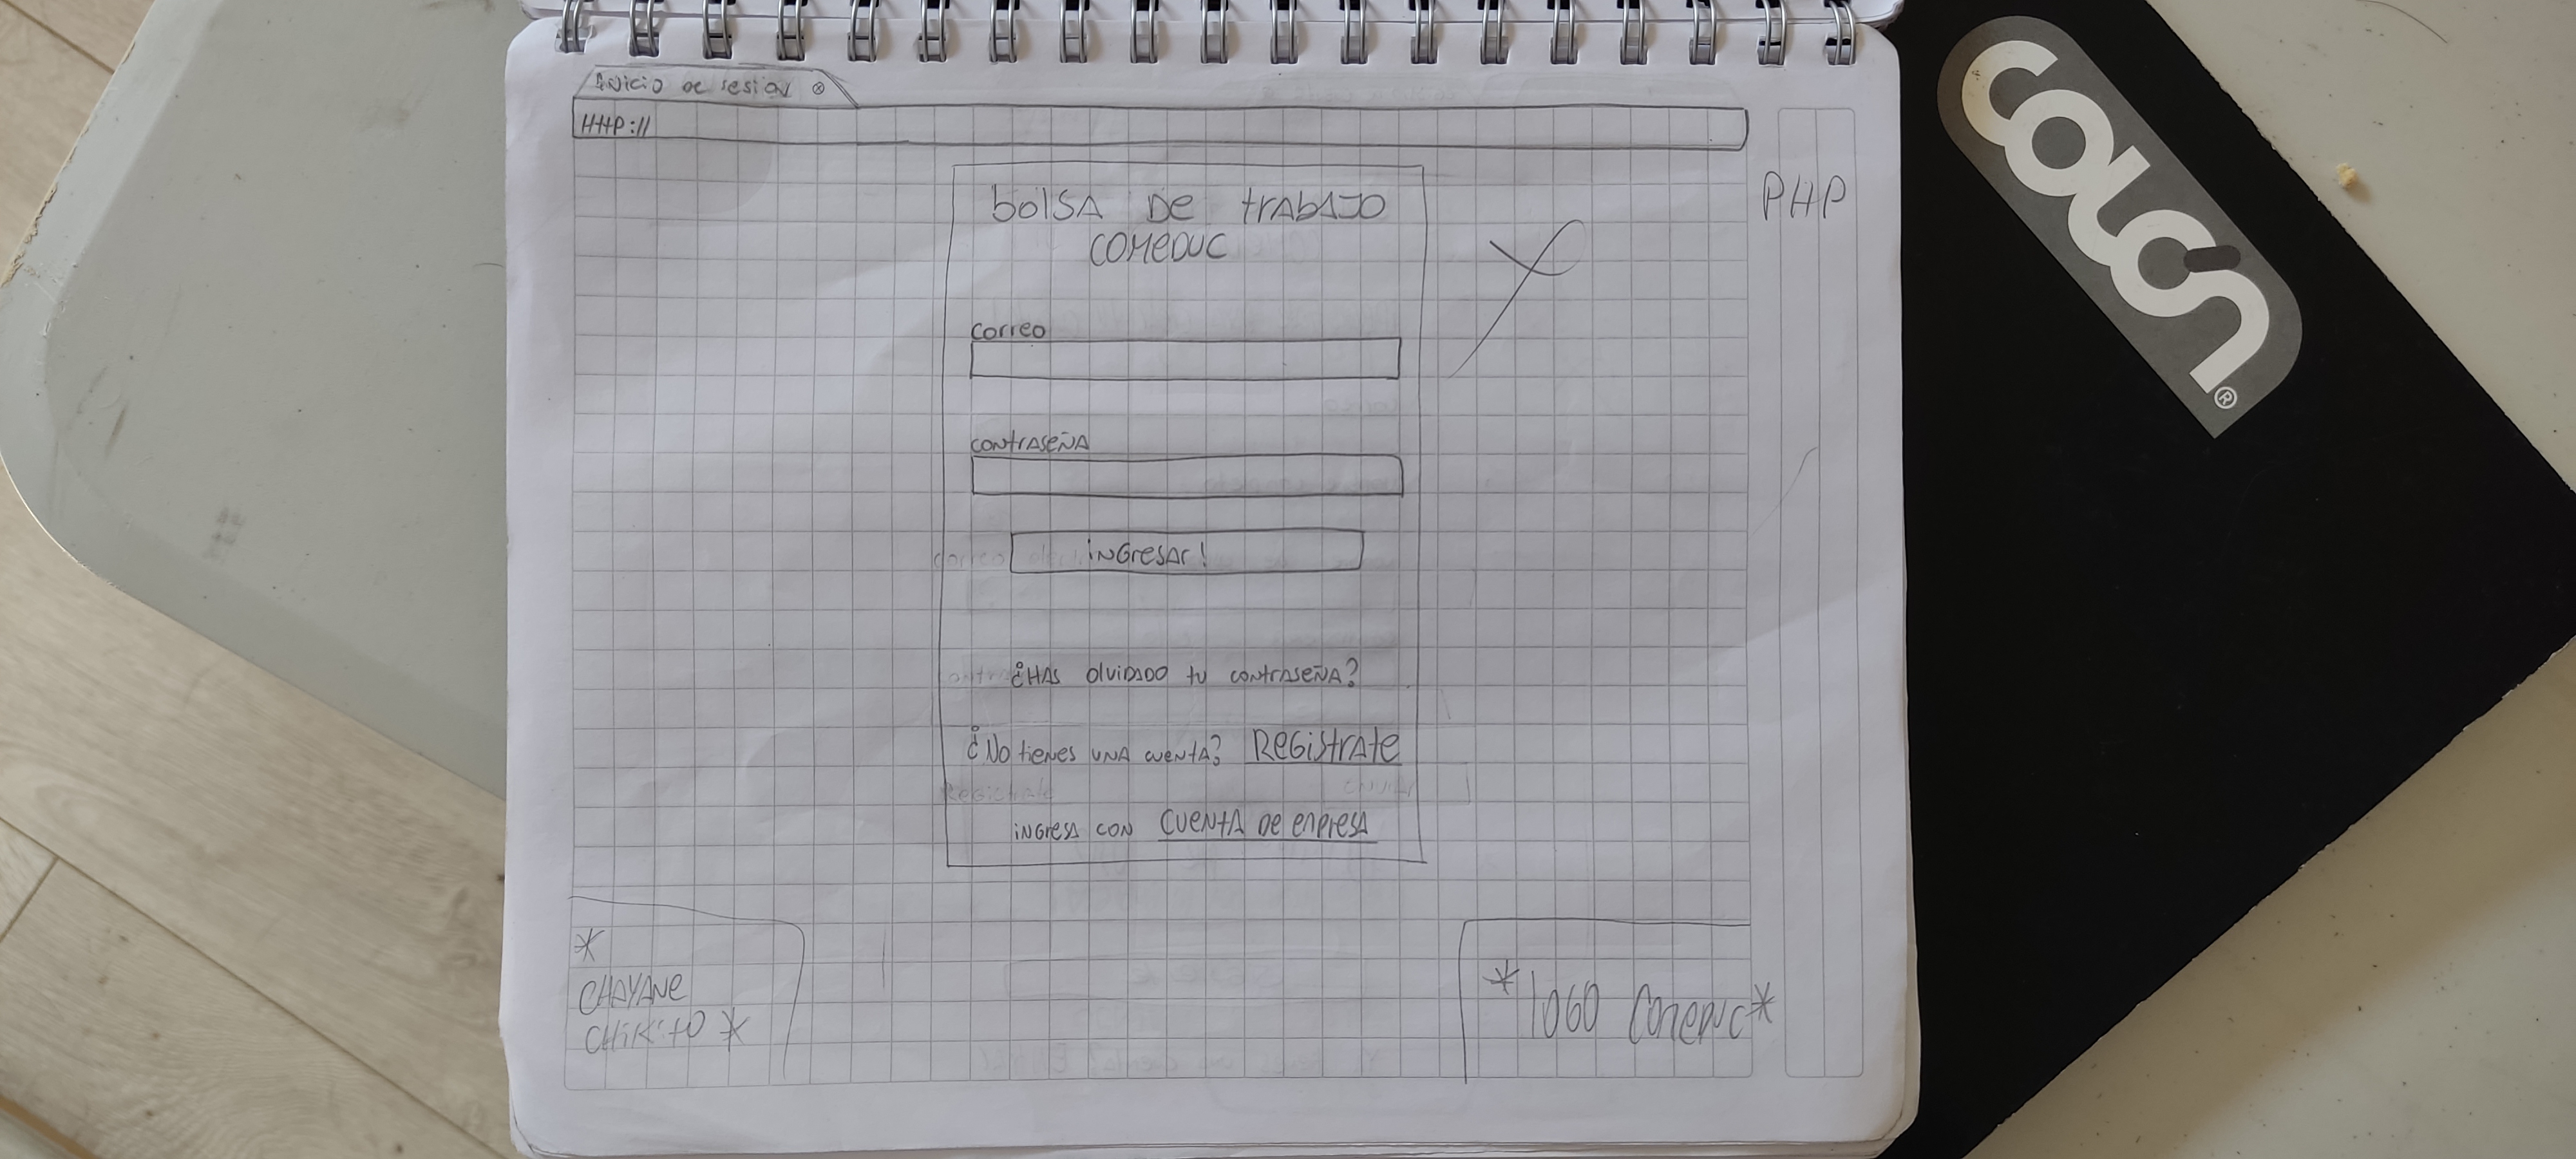 INICIO DE SESION ⊗
HTTP://
PHP
bolSA DE trAbAJO
COMEDUC
correo
contrASEÑA
iNGresAr!
¿HAS olviDADO tu contrASEÑA?
¿No tieNes UNA cuentA? ReGistrAte
iNGresA CON CUENtA De eMpresA
*
CHAYANe
CHiKitO *
*lOGO Comeduc*
colón®